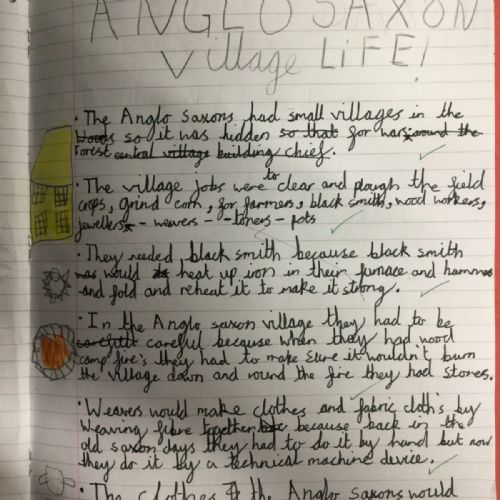 ANGLO SAXON
Village LIFE!
• The Anglo saxons had small villages in the
woods so it was hidden so that for wars around the
forest central village building chief.
• The village jobs were to clear and plough the field
crops, grind corn, for farmers, black smith, wood workers,
jewellers - weavers - - toners - pots
• They needed black smith because black smith
was would heat up iron in their furnace and hammer
and fold and reheat it to make it strong.
• In the Anglo saxon village they had to be
carefull careful because when they had wood
camp fire's they had to make sure it wouldn't burn
the village down and round the fire they had stones.
• Weavers would make clothes and fabric cloth's by
weaving fibre together because back in the
old saxon days they had to do it by hand but now
they do it by a technical machine device.
• The clothes the Anglo saxons would